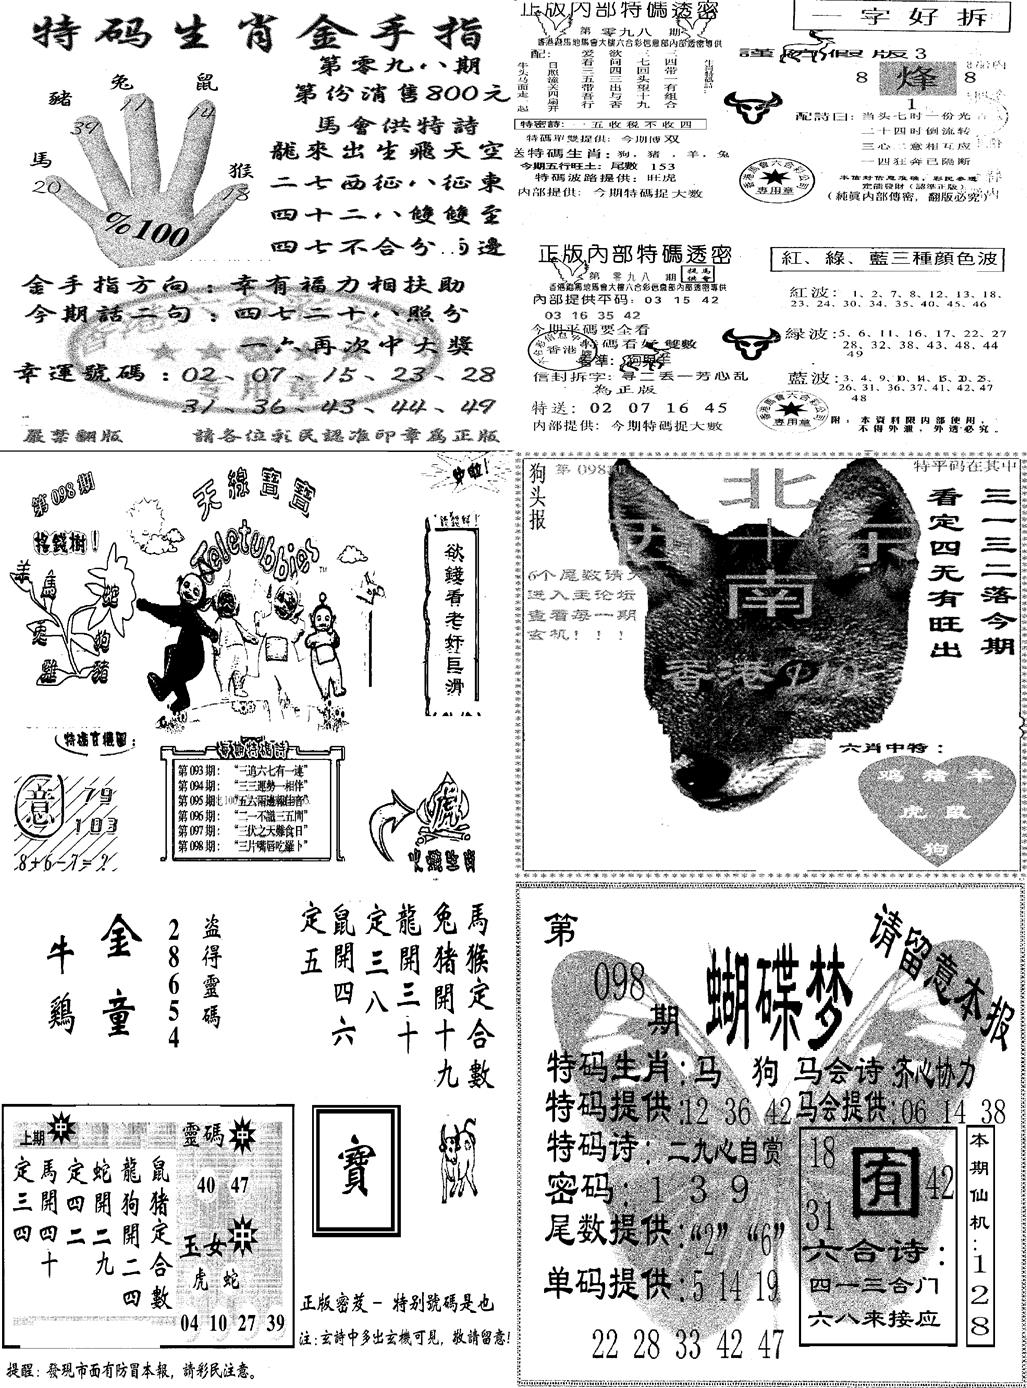 特码生肖金手指
第零九八期
第份消售800元
兔
豬
鼠
11
14
39
馬
20
猴
18
%100
馬會供特詩
龍來出生飛天空
二七西征八征東
四十二八雙雙至
四七不合分
邊
金手指方向：幸有福力相扶助
今期話二句：四七二十八照分
一六再次中大獎
幸運號碼：02、07、15、23、28
31、36、43、44、49
專用章
嚴禁翻版
請各位彩民認准印章為正版
正版内部特碼透密
第零九八期
香港跑馬地馬會大樓六合彩信息部内部透密專供
特密詩：
五收税不收四
特碼單雙提供：今期博双
送特碼生肖：狗，猪，羊，兔
今期五行旺土：尾數 153
特碼波路提供：旺虎
内部提供：今期特碼捉大数
一字好拆
謹防假版3
8
烽
8
1
配詩曰：当头七时一份光
二十四时倒流转
三心二意相互应
一四狂奔已隔断
專用章
(純眞内部傳密，翻版必究)
正版内部特碼透密
第零九八期
香港跑馬地馬會大樓六合彩信息部内部透密專供
内部提供平码：03 15 42
03 16 35 42
今期平碼要全看
特碼看好雙數
香港
信封拆字：尋二丟一芳心乱
為正版
特送：02 07 16 45
内部提供：今期特碼捉大数
紅、綠、藍三種顔色波
紅波：1、2、7、8、12、13、18、
23、24、30、34、35、40、45、46
緑波：5、6、11、16、17、22、27
28、32、38、43、48、44
49
藍波：3、4、9、10、14、15、20、25、
26、31、36、37、41、42、47
48
專用章
附：本資料限内部使用，
不得外泄，外透必究。
第098期
天線寶寶
Teletubbies
搖錢樹！
羊
馬
蛇
兔
狗
雞
豬
欲錢看老奸巨滑
意
79
103
8+6-7=?
第093期：“三追六七有一連”
第094期：“三三運勢一相伴”
第095期：“五六兩邊報佳音”
第096期：“二一不識三五門”
第097期：“三伏之天難食日”
第098期：“三片嘴唇吃蘿卜”
虎
狗头报
第098期
特平码在其中
北
西十东
南
三一三二落今期
看定四无有旺出
6个尾数请
进入主论坛
查看每一期
玄机！！！
香港
六肖中特：
鸡 猪 羊
虎 鼠
狗
金童
牛鷄
盗得靈碼
28654
馬猴定合數
兔猪開十九
龍開三十
定三八
鼠開四六
定五
上期中
鼠猪定合數
龍狗開二四
蛇開二九
定四二
馬開四十
定三四
靈碼中
40 47
玉女中
虎 蛇
04 10 27 39
寶
正版密笈－特别號碼是也
注：玄詩中多出玄機可見，敬請留意！
提醒：發現市面有防冒本報，請彩民注意。
第
098
期
蝴蝶梦
请留意本报
特码生肖：马 狗
马会诗：齐心协力
特码提供：12 36 42
马会提供：06 14 38
特码诗：二九心自赏
密码：1 3 9
尾数提供：“2” “6”
单码提供：5 14 19
22 28 33 42 47
18
有
42
31
六合诗：
四一三合门
六八来接应
本期仙机：128